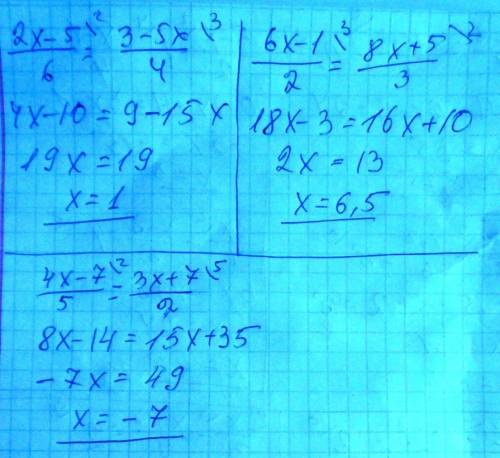 2x-5\2 / 6 = 3-5x\3 / 4
4x-10 = 9-15x
19x = 19
x = 1
6x-1\3 / 2 = 8x+5\2 / 3
18x-3 = 16x+10
2x = 13
x = 6,5
4x-7\2 / 5 = 3x+7\5 / 2
8x-14 = 15x+35
-7x = 49
x = -7